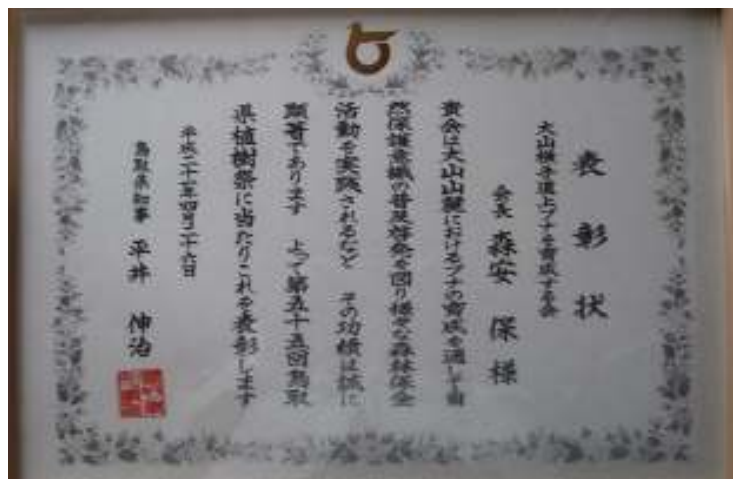 表彰状
大山横手道上ブナを育成する会
会長 森安 保 様
貴会は大山山麓におけるブナの育成を通して自
然保護意識の普及啓発を図り様々な森林保全
活動を実践されるなど その功績は誠に
顕著であります よって第五十五回鳥取
県植樹祭に当たりこれを表彰します
平成二十一年四月二十六日
鳥取県知事 平井 伸治